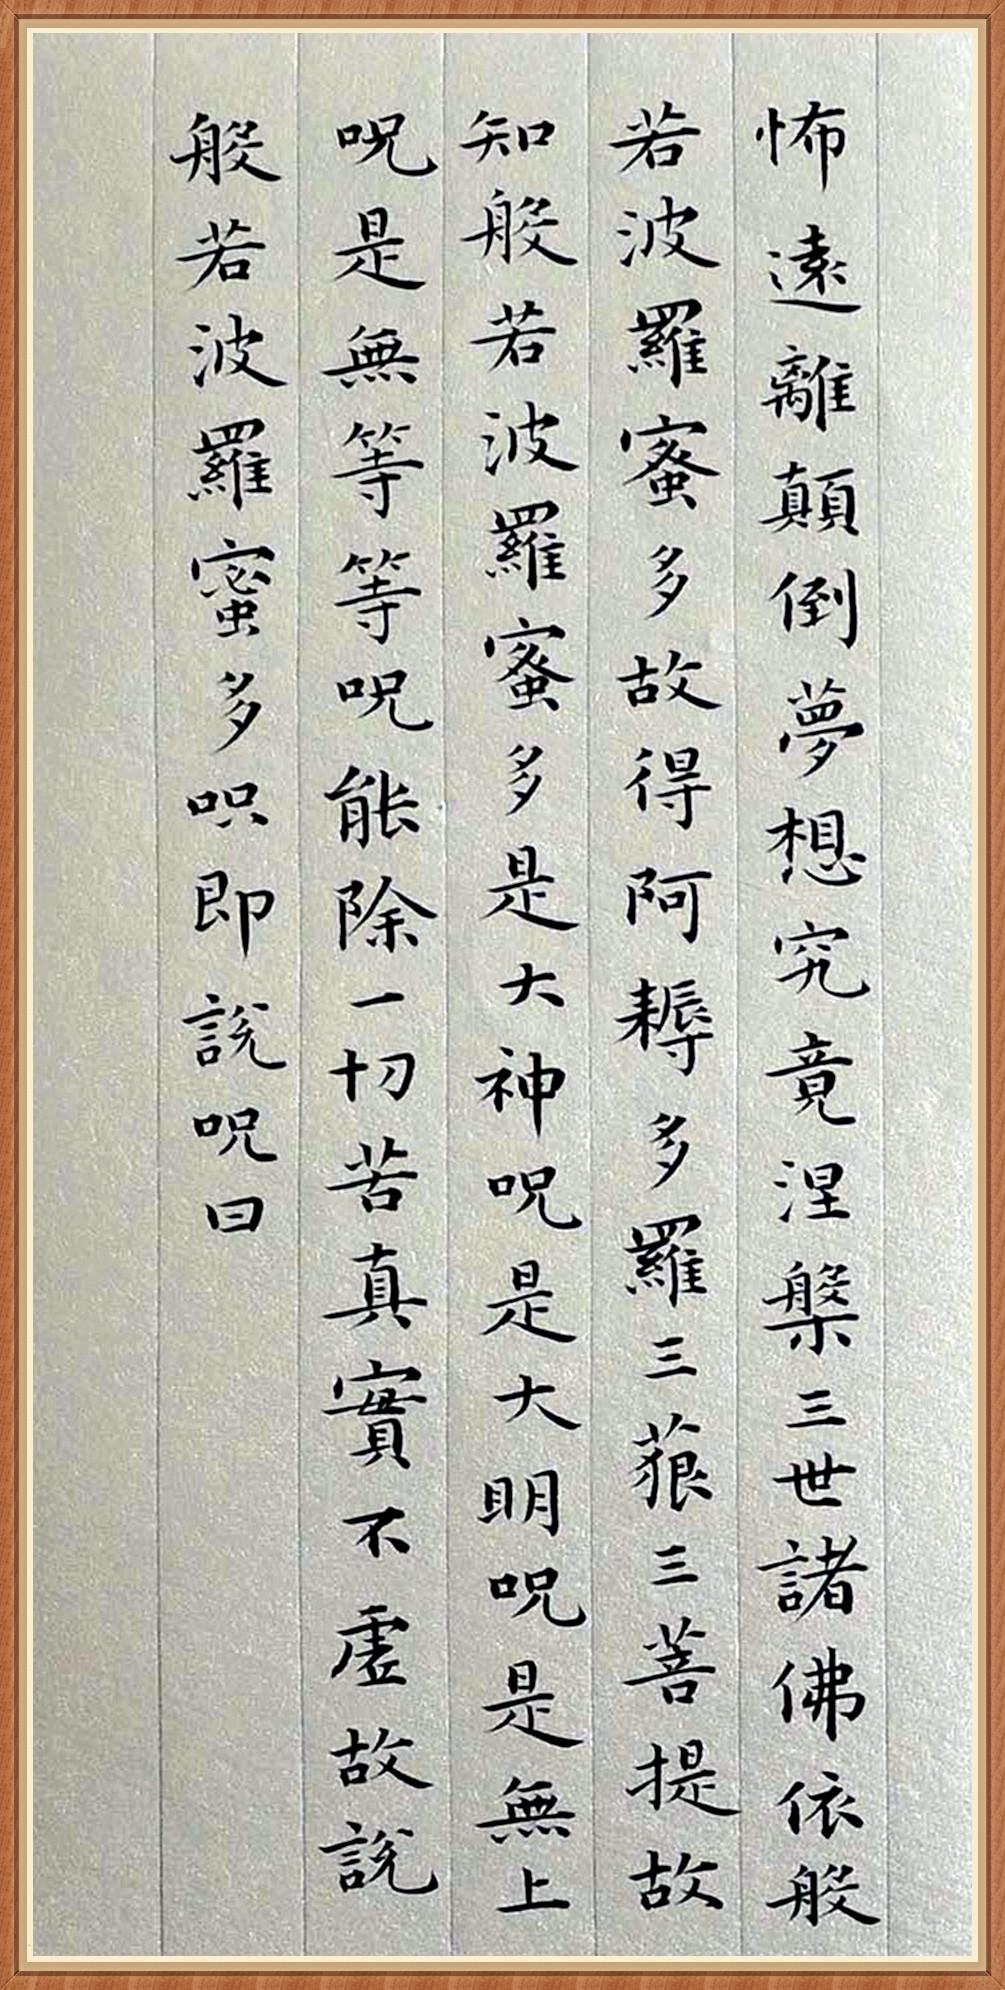 怖遠離顛倒夢想究竟涅槃三世諸佛依般
若波羅蜜多故得阿耨多羅三藐三菩提故
知般若波羅蜜多是大神呪是大明呪是無上
呪是無等等呪能除一切苦真實不虛故說
般若波羅蜜多呪即說呪曰